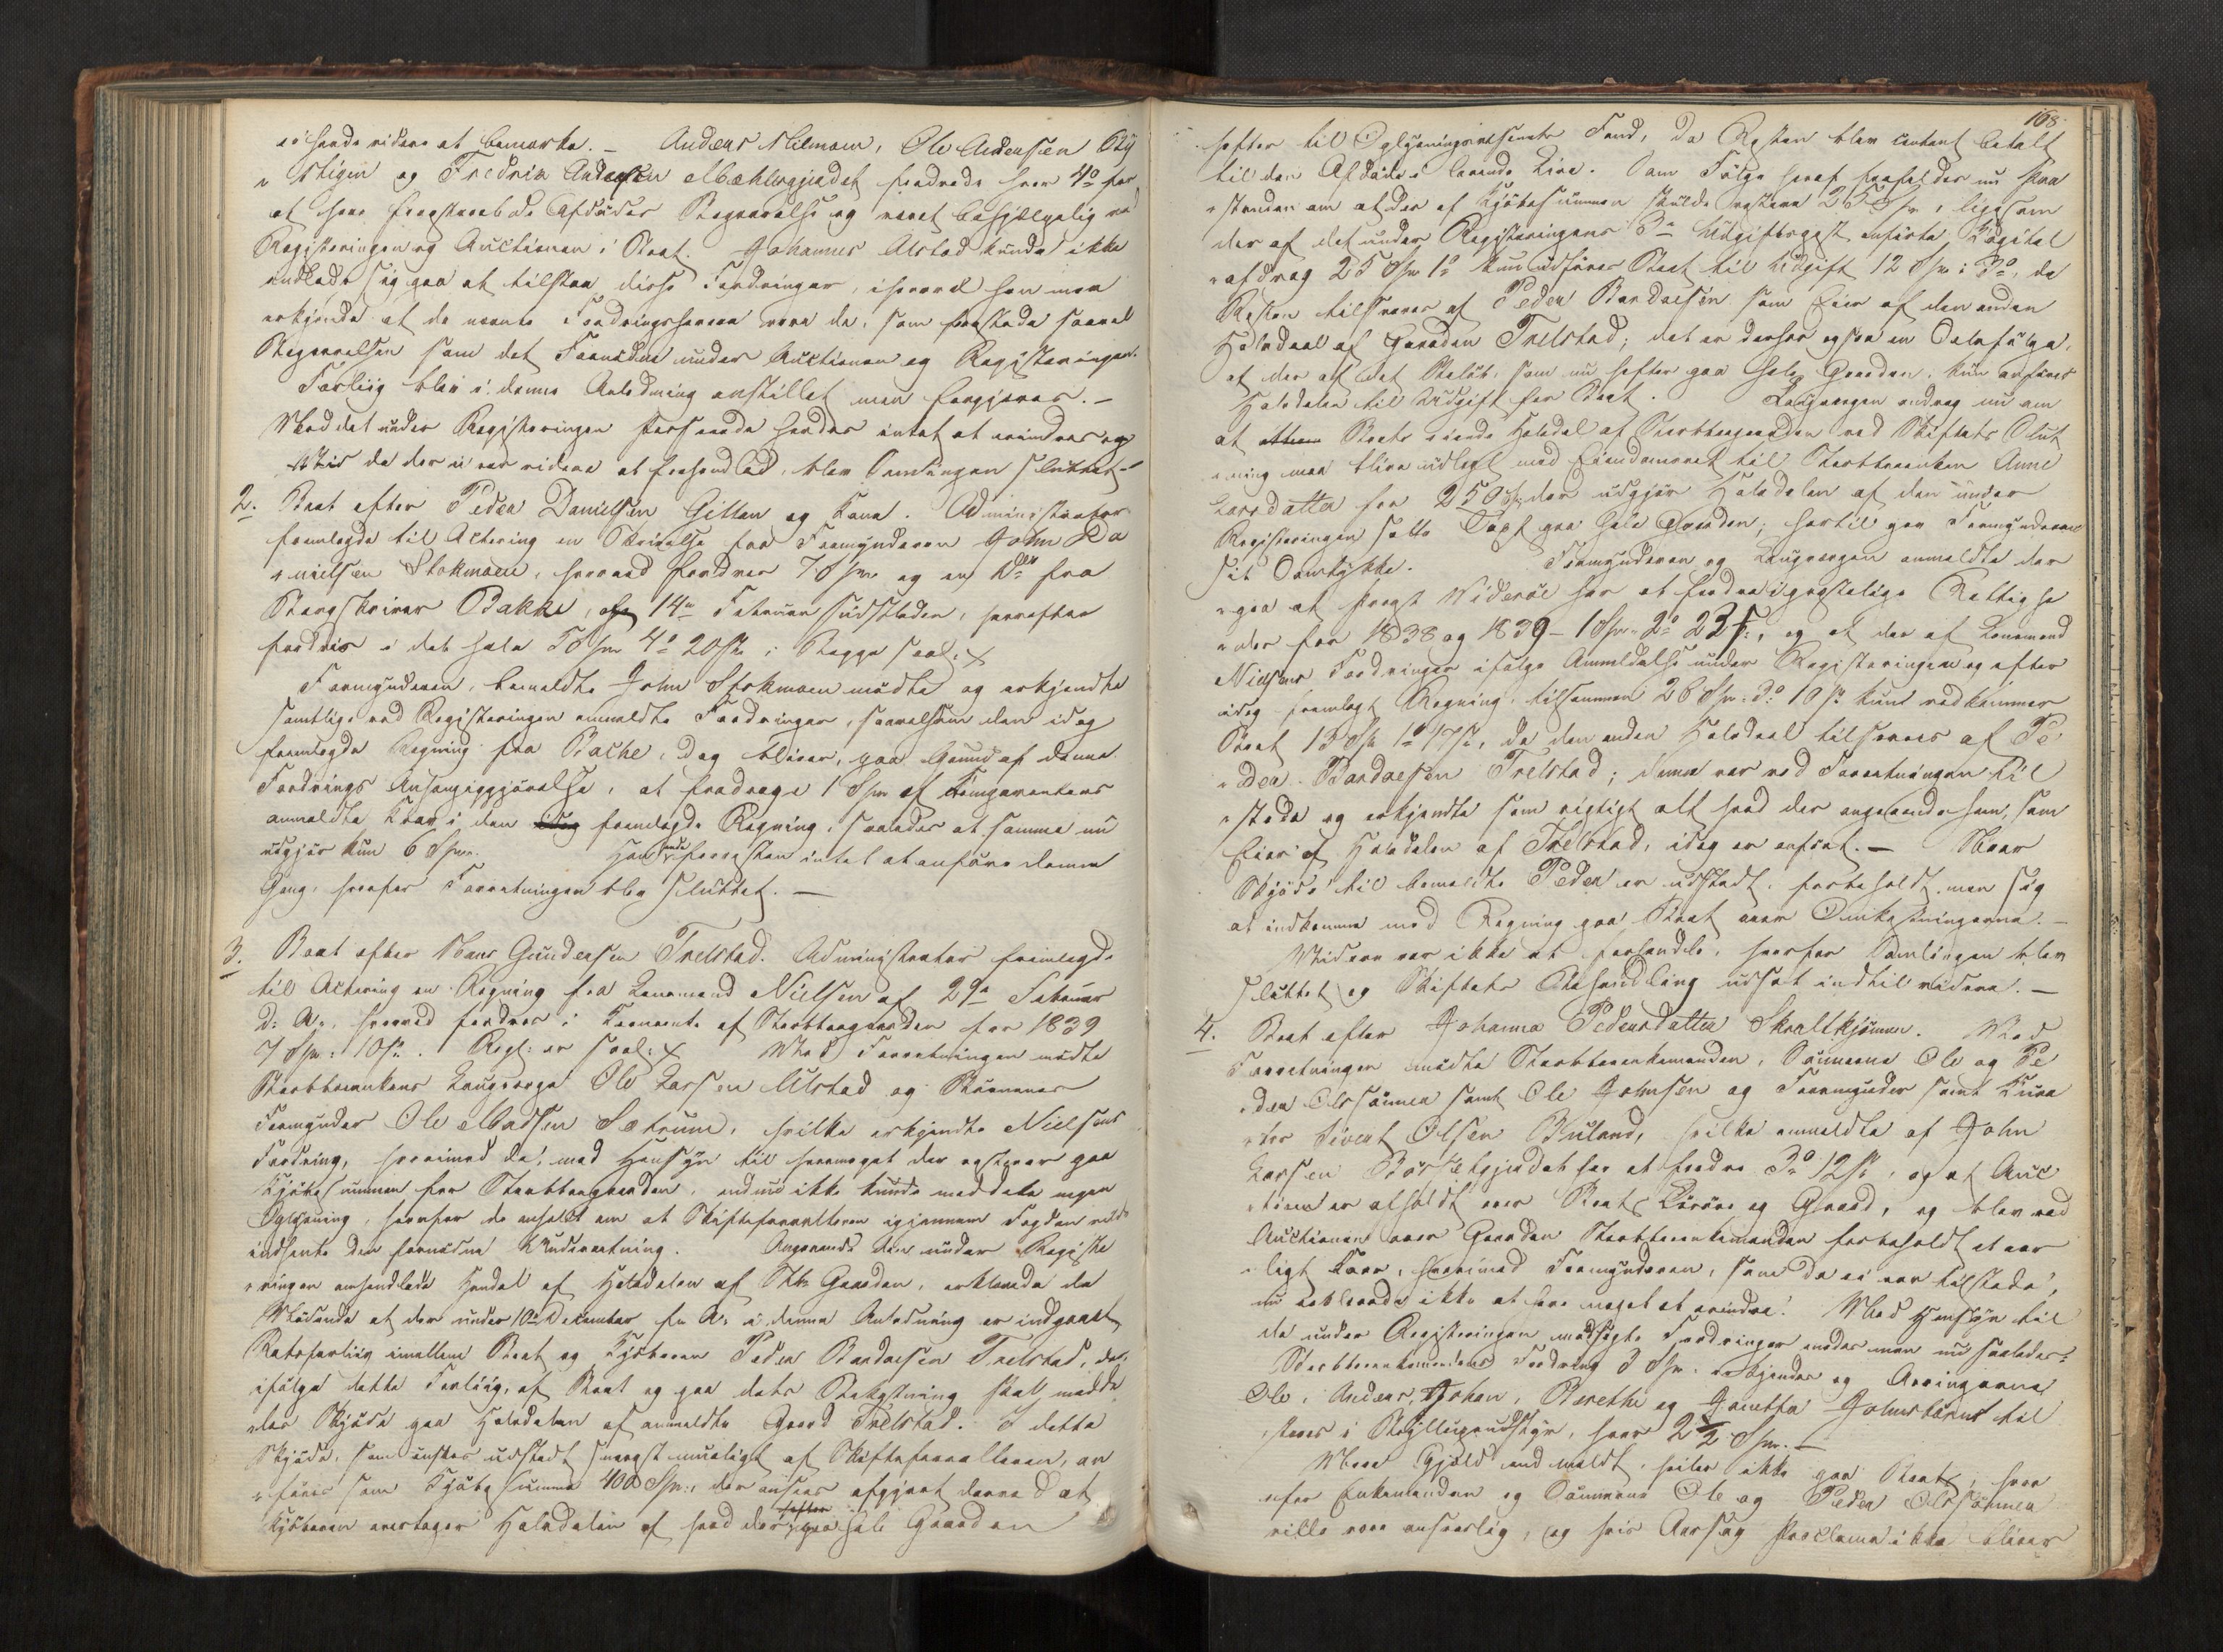 ei havde videre at bemærke. – Anders Milmoen, Ole Andersen By
stigen og Fredrik Andersen Mæhlergjerdet fordrede hver 4o for
at have forestaaet de Afdødes Begravelse og været behjælpelig ved
Registeringen og Auctionen i Boet. Johannes Alstad kunde ikke
indlade sig paa at tilstaa disse Fordringer, ihvorvel han maa
erkjende at de nævnte Fordringshavere vare de, som forestode saavel
Begravelsen som det Fornødne under Auctionen og Registeringen.
Forliig blev i denne Anledning anstillet men forgjæves. –
Mod det under Registeringen Passerede havdes intet at erindre og
da der ei var videre at forhandle, blev Samlingen sluttet –
2. Boet efter Peder Danielsen Gilten og Kone. Administrator
fremlagde til Actering en Skrivelse fra Formynderen John Da
nielsen Stokmoen, hvorved fordres 7 Spd og en Do fra
Bergskriver Bakke, 14de Februar sidstleden, hvorefter
fordres i det hele 4o 20 s; Begge saal: X
Formynderen, bemeldte John Stokmoen mødte og erkjendte
samtlige ved Registeringen anmeldte Fordringer, saavelsom den idag
fremlagde Regning fra Bache, dog bliver, paa Grund af denne
Fordrings, at fradrage 1 Spd af
anmeldte Krav i den fremlagde Regning, saaledes at samme nu
udgjør kun 6 Spd. Han havde forresten intet at anføre denne
Gang, hvorfor Forretningen blev sluttet. –
3. Boet efter Hans Gundersen Trelstad. Administrator fremlagde
til Actering en Regning fra Lensmand Nielsen af 29de Februar
d: A:, hvorved fordres i af Sterbboegaarden for 1839
7 Spd: 10 s. Regl: er saal: X Ved Forretningen mødte
Sterbboenkens Laugværge Ole Larsen Ulstad og Børnenes
Formynder Ole Madsen Sætrum, hvilke erkjendte Nielsens
Fordring, hvorimod de, med Hensyn til hvormeget der resterer paa
Kjøbesummen for Sterbboegaarden, endnu ikke kunde meddele nogen
Oplysning, hvorfor de anholdt om at Skifteforvalteren igjennem Fogden vilde
indhente den fornødne Underretning. Angaaende den under Registe
ringen omhandlede Handel af Halvdelen af Stb: Gaarden, erklærede de
Mødende at der under 10de December f: A: i denne Anledning er indgaaet
Retsforliig imellem Boet og Kjøberen Peder Bardoesen Trelstad, der
ifølge dette Forliig, af Boet og paa dets Bekostning skal meddeles
Skjøde paa Halvdelen af anmeldte Gaard Trelstad. I dette
Skjøde, som ønskes udstedt snarest mueligt af Skifteforvalteren, an
føres som Kjøbesumma 400 Spd:, der ansees afgjort derved at
Kjøberen overtager Halvdelen af hvad der hefter paa hele Gaarden
168.
hefter til Oplysningsvæsenets Fond, da Resten blev contant betalt
til den Afdøde i levende Live. Som Følge heraf bortfalder nu Paa
standen om at der af Kjøbesummen skulde restere 25 Spd, ligesom
der af det under Registeringens 3de Udgiftspost anførte Kapital
afdrag 25 Spd 1o kun udføres Boet til Udgift 12 Spd: 3o, da
Resten tilsvares af Peder Bardoesen som Eier af den anden
Halvdeel af Gaarden Trelstad; det er derfor ogsaa en Selvfølge,
at der af det Beløb, som nu hefter paa hele Gaarden, kun anføres
Halvdelen til Udgift for Boet. Laugværgen androg nu om
at Boets eiende Halvdel af Sterbboegaarden ved Skiftets Slut
ning maa blive udlagt med Eiendomsret til Sterbboenken Anne
Larsdatter for 250 Spd der udgjør Halvdelen af den under
Registeringen satte Taxt paa hele Gaarden; hertil gav Formynderen
sit Samtykke. Formynderen og Laugværgen anmeldte der
paa at Provst Widerøe har at fordre i præstelige Rettighe
der for 1838 og 1839 – 1 Spd 2o 23 s:, og at der af Lensmand
Nielsens Fordringer ifølge Anmeldelse under Registeringen og efter
idag fremlagt Regning, tilsammen 26 Spd: 3o: 10 s kuns vedkommer
Boet 13 Spd 1o 17 s, da den anden Halvdeel tilsvares af Pe
der Bardoesen Trelstad; denne var ved Forretningen til
stede og erkjendte som rigtigt alt hvad der angaaende ham, som
Eier af Halvdelen af Trelstad, idag er anført. – Naar
Skjøde til bemeldte Peder er udstedt, forbeholdt man sig
at indkomme med Regning paa Boet over Omkostningerne. –
Videre var ikke at forhandle, hvorfor Samlingen blev
sluttet og Skiftets Behandling udsat indtil videre. –
4. Boet efter Johanna Pedersdatter Skreltkjømmen. Ved
Forretningen mødte Sterbboenkemanden, Sønnerne Ole og Pe
der Olssønner samt Ole Johnsen og Formynder samt Kura
tor Sivert Olsen Buland, hvilke anmeldte af John
Larsen har at fordre 3o 12 s, og at Auc
tion er afholdt over Boets Løsøre og Gaard, og blev ved
Auctionen over Gaarden Sterbboenkemanden forbeholdt et aar
ligt Kaar, hvorimod Formynderen, som da ei var tilstede,
nu erklærede ikke at have noget at erindre. Med Hensyn til
de under Registeringen modsigte Fordringer enedes man nu saaledes:
Sterbboenkemandens Fordring 3 Spd. erkjendes og Arvingerne
Ole, Anders, Johan, Berethe og Johnsbørns til
staaes i Bryllupsudstyr, hver 2½ Spd. –
Mere Gjeld end meldt, hviler ikke paa Boet, hvor
for Enkemanden og Sønnerne Ole og Peder Olssønner
ville være ansvarlig, og hvis Aarsag Proclama ikke bliver